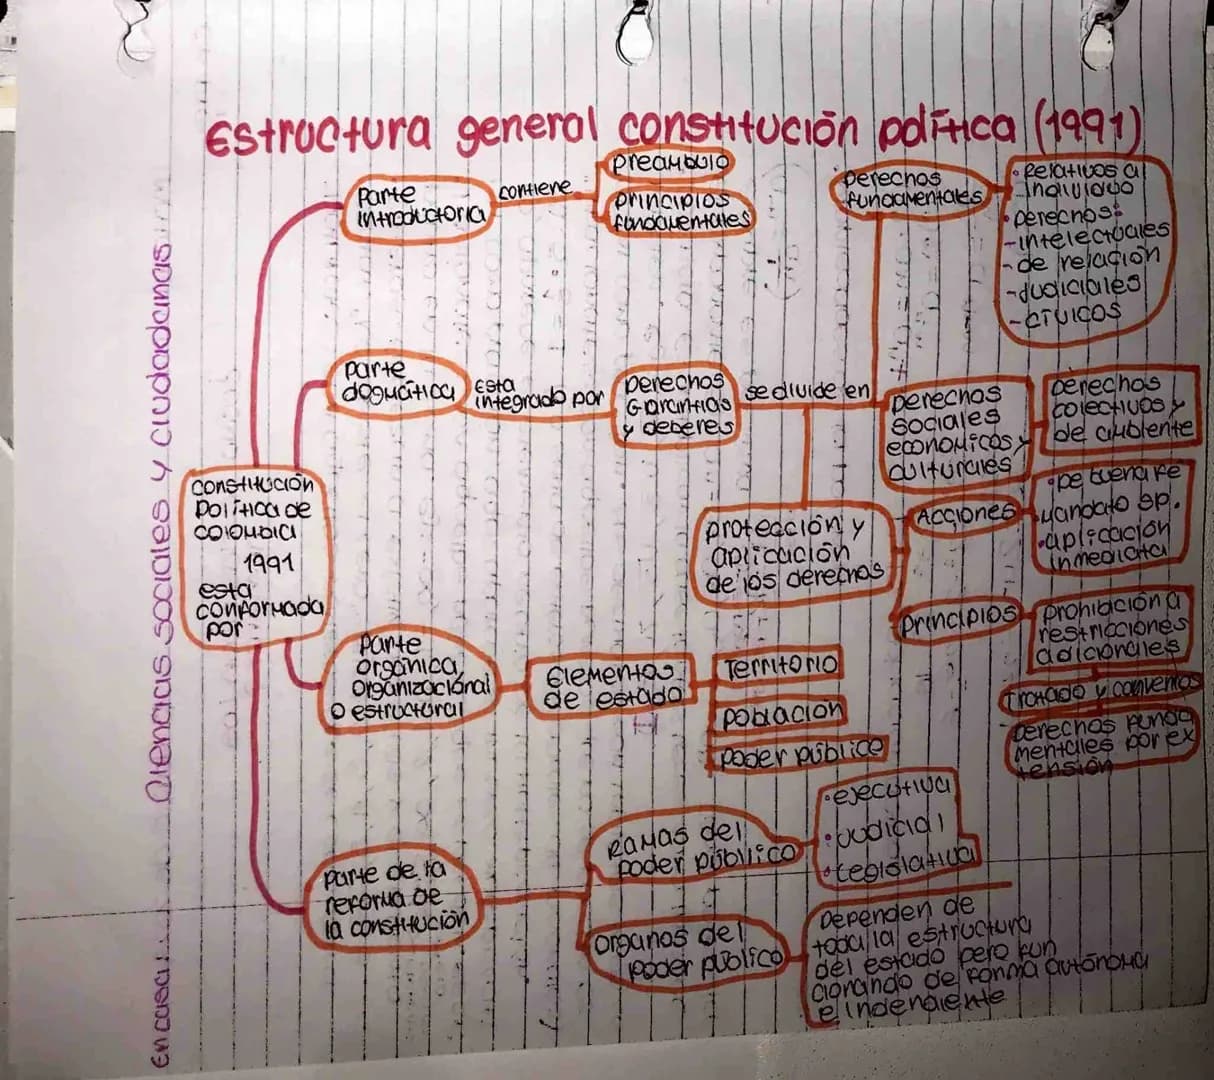 Estructura general constitución política (1991)
Ciencias sociales y ciudadanas
En casa:
constitución
Política de
colombia
1991
esta
conformada
por
Parte
introductoria
contiene
preambulo
principios
fundamentales
parte
dogmática
Esta
integrado por
Derechos
Garantias
y deberes
se divide en
Derechos
fundamentales
• Relativos al
individuo
• Derechos:
- intelectuales
- de relación
- Judiciales
- cívicos
Derechos
sociales
economicos y
culturales
Derechos
colectivos y
de ambiente
protección y
aplicación
de los derechos
Acciones
• De buena fe
Mandato sp.
• aplicación
inmediata
Principios
prohibición a
restricciones
adicionales
Tratado y convenios
Derechos funda
mentales por ex
tensión
Parte
orgánica,
organizaciónal
o estructural
Elementos
de estado
Territorio
población
poder público
parte de la
reforma de
la constitución
Ramas del
poder público
• ejecutiva
• Judicial
• Legislativa
organos del
poder público
Dependen de
toda la estructura
del estado pero fun
cionando de forma autónoma
e indendiente